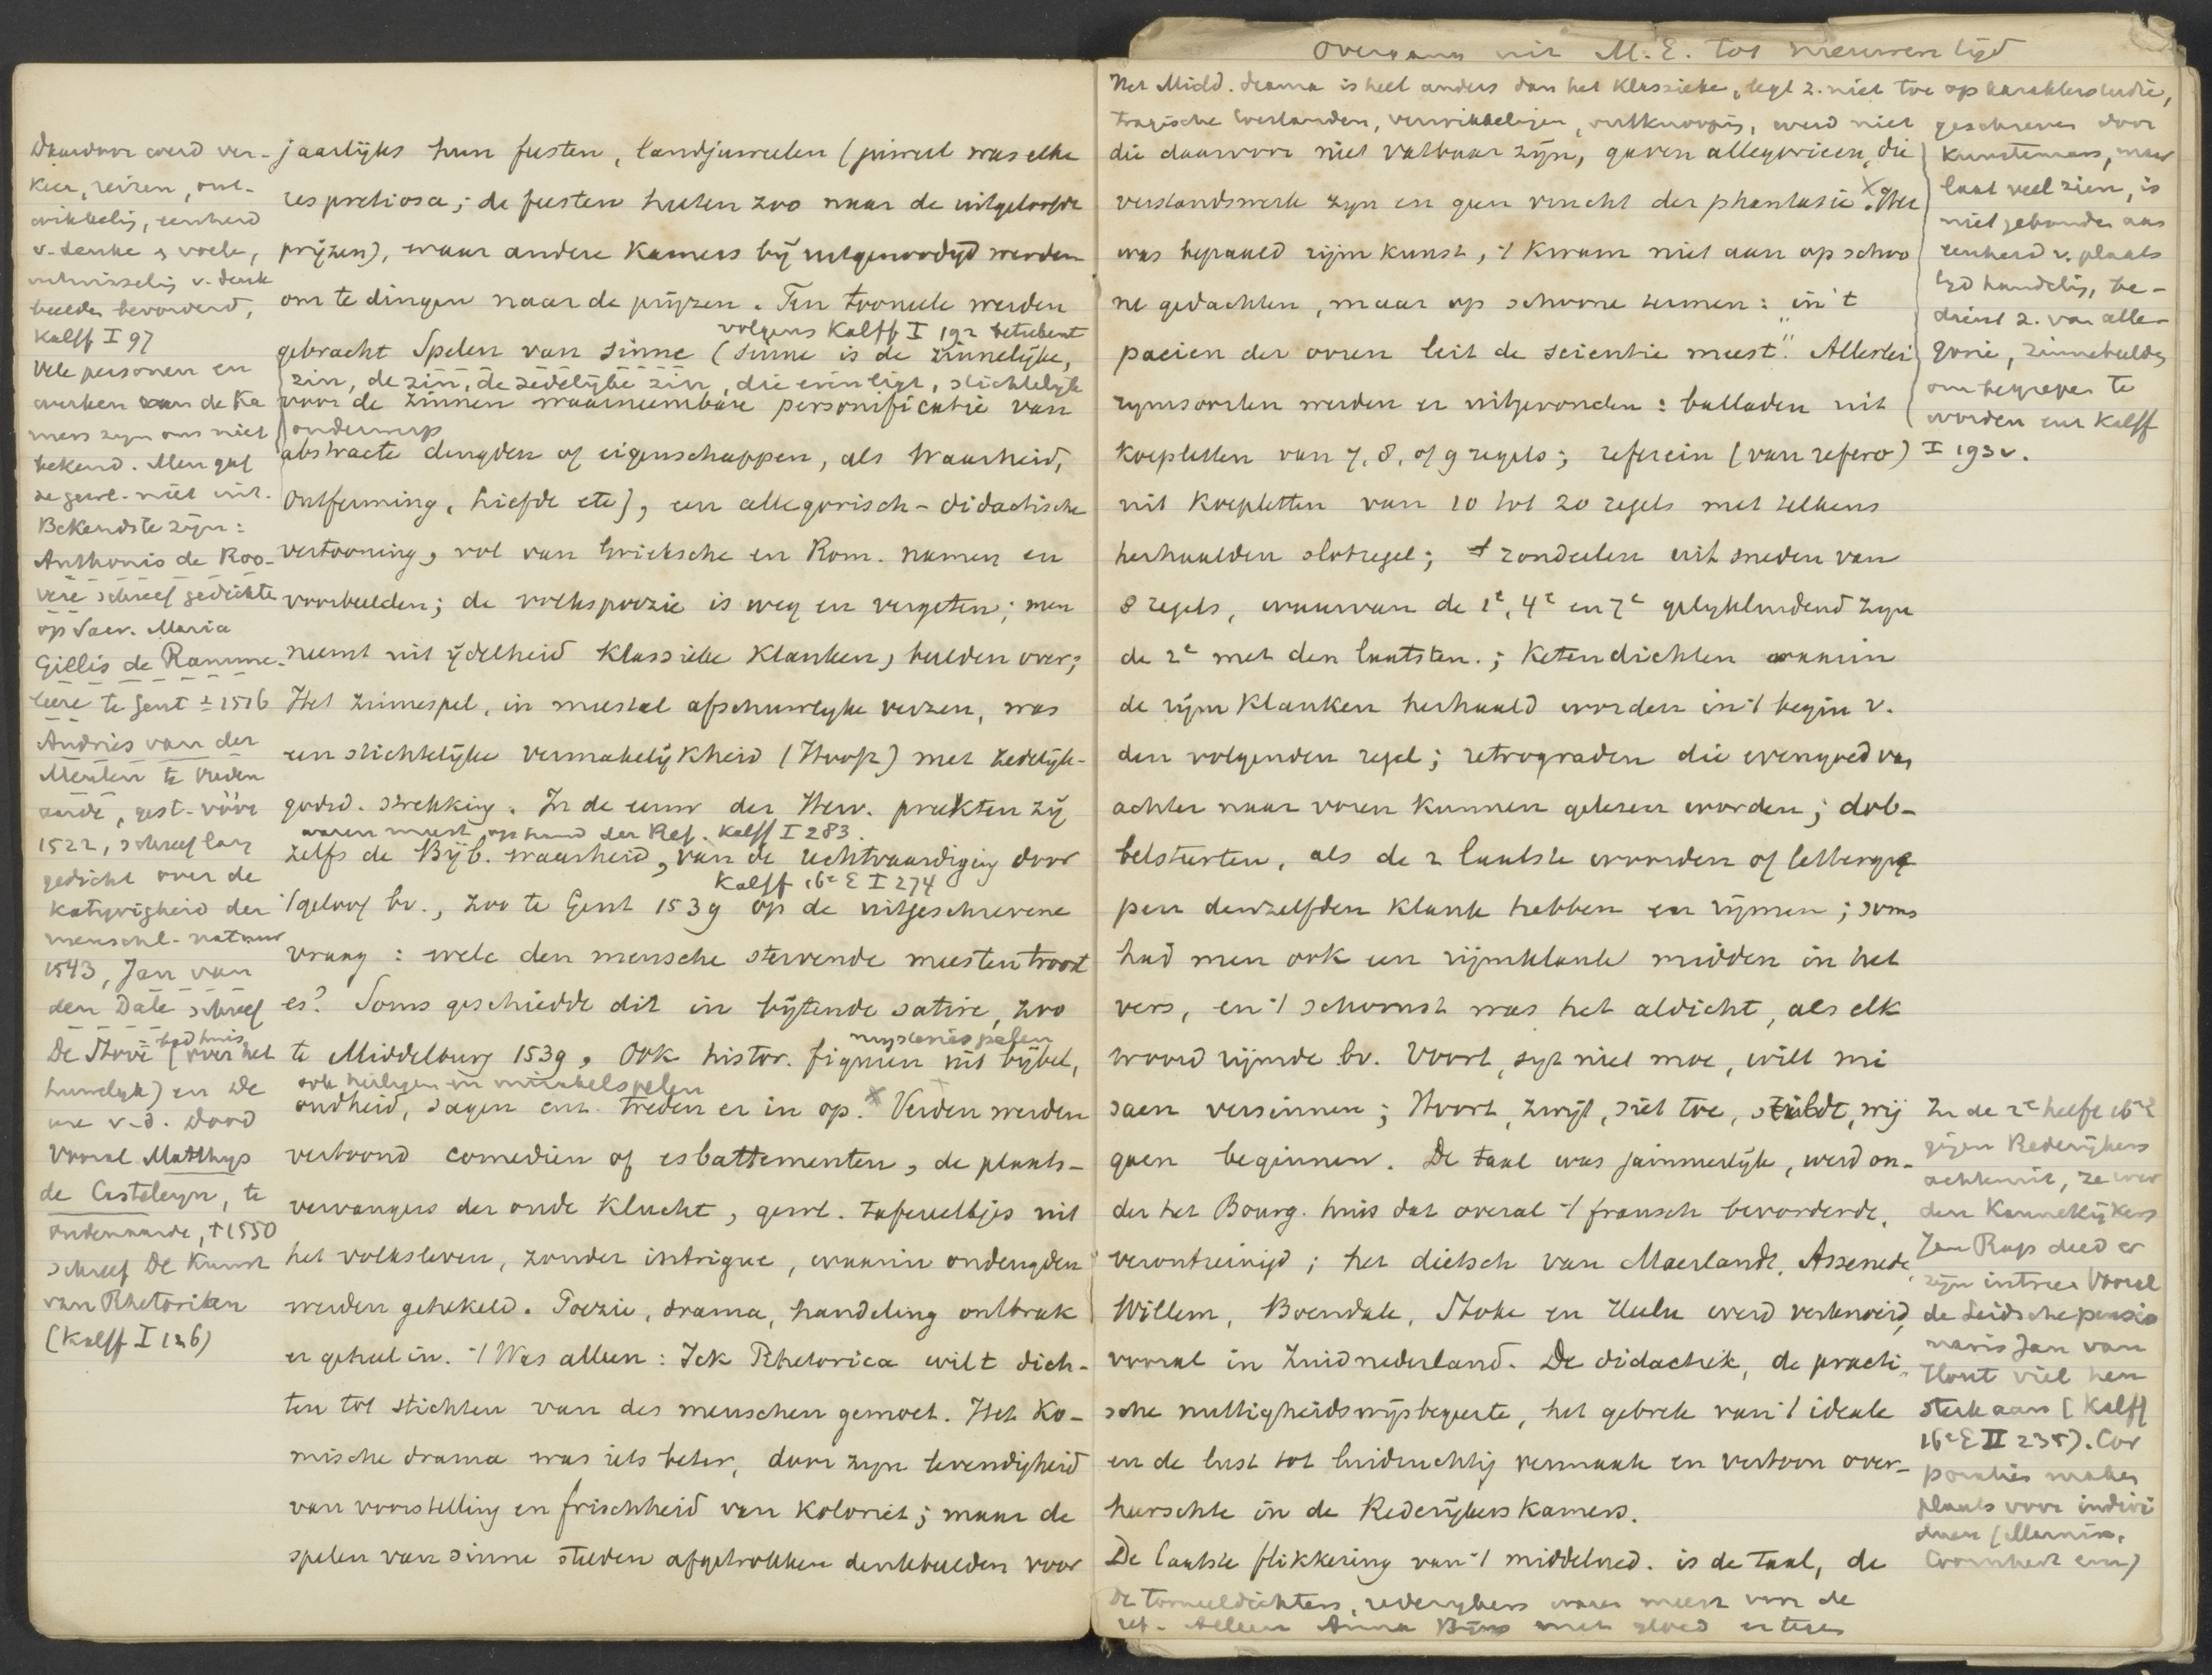 Daardoor werd ver-
keer, reizen, ont-
wikkelig, eenheid
v. denke & voele,
uitwisselig v. denk
beelden bevorderd,
Kalff I 97
Vele personen en
werken van de Ka
mers zyn ons niet
bekend. Men gaf
ze gewl. niet uit.
Bekendste zijn:
Anthonis de Roo-
vere schreef gedichte
op Sacr. Maria
Gillis de Ramme-
leere te Gent ± 1516
Andries van der
Meulen te Ouden
aarde, gest. vóór
1522, schreef lang
gedicht over de
katyvigheid der
menschl. natuur
1543, Jan van
den Dale schreef
De Stove (= badhuis over het
huwelyk) en De
ure v. d. dood
Vooral Matthys
de Casteleyn, te
Oudenaarde, † 1550
schreef De Kunst
van Rhetoriken
(Kalff I 126)
jaarlijks hun feesten, landjuweelen (juweel was elke
res pretiosa; de feesten heeten zoo naar de uitgeloofde
prijzen), waar andere Kamers bij uitgenoodigd werden
om te dingen naar de prijzen. Ten tooneele werden
volgens Kalff I 192 beteekent
gebracht Spelen van sinne (sinne is de zinnelijke,
zin, de zin, de zedelijke zin, die erin ligt, stichtelyk
voor de zinnen waarneembare personificatie van
onderwerp
abstracte deugden of eigenschappen, als Waarheid,
Ontferming, Liefde etc), een allegorisch-didactische
vertooning, vol van Grieksche en Rom. namen en
voorbeelden; de volkspoezie is weg en vergeten; men
neemt uit ijdelheid klassieke klanken, beelden over;
Het zinnespel, in meestal afschuwlyke verzen, was
een stichtelijke vermakelijkheid (Hoof) met zedelijk-
godsd. strekking. In de eeuw der Herv. preekten zij
waren meest op hand der Ref. Kalff I 283.
zelfs de Bijb. waarheid, van de rechtvaardiging door
Kalff 16e E I 274
't geloof bv., zoo te Gent 1539 op de uitgeschrevene
vraag: welc den mensche stervende meesten troost
es? Soms geschiedde dit in bijtende satire, zoo
mysteriespelen
te Middelburg 1539, Ook histor. figuren uit bijbel,
ook heiligen in mirakelspelen
oudheid, sagen enz. treden er in op. x Verder werden
vertoond comediën of esbattementen, de plaats-
vervangers der oude klucht, gewl. tafereeltjes uit
het volksleven, zonder intrigue, waarin ondeugden
werden gehekeld. Poezie, drama, handeling ontbrak
er geheel in. 't Was alleen: Ick Rhetorica wilt dich-
ten tot stichten van des menschen gemoet. Het Ko-
mische drama was iets beter, door zyn levendigheid
van voorstelling en frischheid van koloriet; maar de
spelen van sinne stelden afgetrokken denkbeelden voor
Overgang uit M. E. tot nieuwen tijd
Het Midd. drama is heel anders dan het Klassieke, legt z. niet toe op karakterstudie,
tragische toestanden, verwikkelingen, ontknooping, werd niet
die daarvoor niet vatbaar zijn, gaven allegorieen, die
verstandswerk zyn en geen vrucht der phantasie. x Het
was bepaald rijmkunst, 't kwam niet aan op schoo
ne gedachten, maar op schoone termen: „in 't
paeien der ooren leit de scientie meest." Allerlei
rymsoorten werden er uitgevonden: balladen uit
koepletten van 7, 8, of 9 regels; referein (van refero)
uit koepletten van 10 tot 20 regels met telkens
herhaalden slotregel; rondeelen uit sneden van
8 regels, waarvan de 1e, 4e en 7e gelykluidend zyn
de 2e met den laatsten.; Ketendichten waarin
de rijmklanken herhaald worden in 't begin v.
den volgenden regel; retrograden die evengoed van
achter naar voren kunnen gelezen worden; dob-
belsteerten, als de 2 laatste woorden of lettergre
pen denzelfden klank hebben en rijmen; soms
had men ook een rijmklank midden in het
vers, en 't schoonst was het aldicht, als elk
woord rijmde bv. Voort, syt niet moe, wilt mi
saen versinnen; Hoort, zwijt, siet toe, stildt, wij
gaen beginnen. De taal was jammerlijk, werd on-
der het Bourg. huis dat overal 't fransch bevorderde,
verontreinigd; het dietsch van Maerlandt, Assenede,
Willem, Boendale, Stoke en Heelu werd verknoeid,
vooral in Zuidnederland. De didactiek, de practi-
sche nuttigheidswijsbegeerte, het gebrek van 't ideale
en de lust tot luidruchtig vermaak en vertoon over-
heerschte in de Rederijkers kamers.
De laatste flikkering van 't middelned. is de taal, de
De tooneeldichters, rederykers waren meest voor de
ref. Alleen Anna Bijns met gloed
geschreven door
kunstenaars, maar
laat veel zien, is
niet gebonden aan
eenheid v. plaats
tyd handelig, be-
dient z. van alle-
gorie, zinnebeelden
om begrepen te
worden enz Kalff
I 193 v.
In de 2e helft 16e E
gijen Rederijkers
achteruit, ze wer
den Kannekijkers
Jan Rap deed er
zijn intree Vooral
de Leidsche pensio
naris Jan van
Hout viel hen
sterk aan (Kalff
16e E II 235). Cor
poraties maken
plaats voor indivi
duen (Marnix,
Coornhert enz)